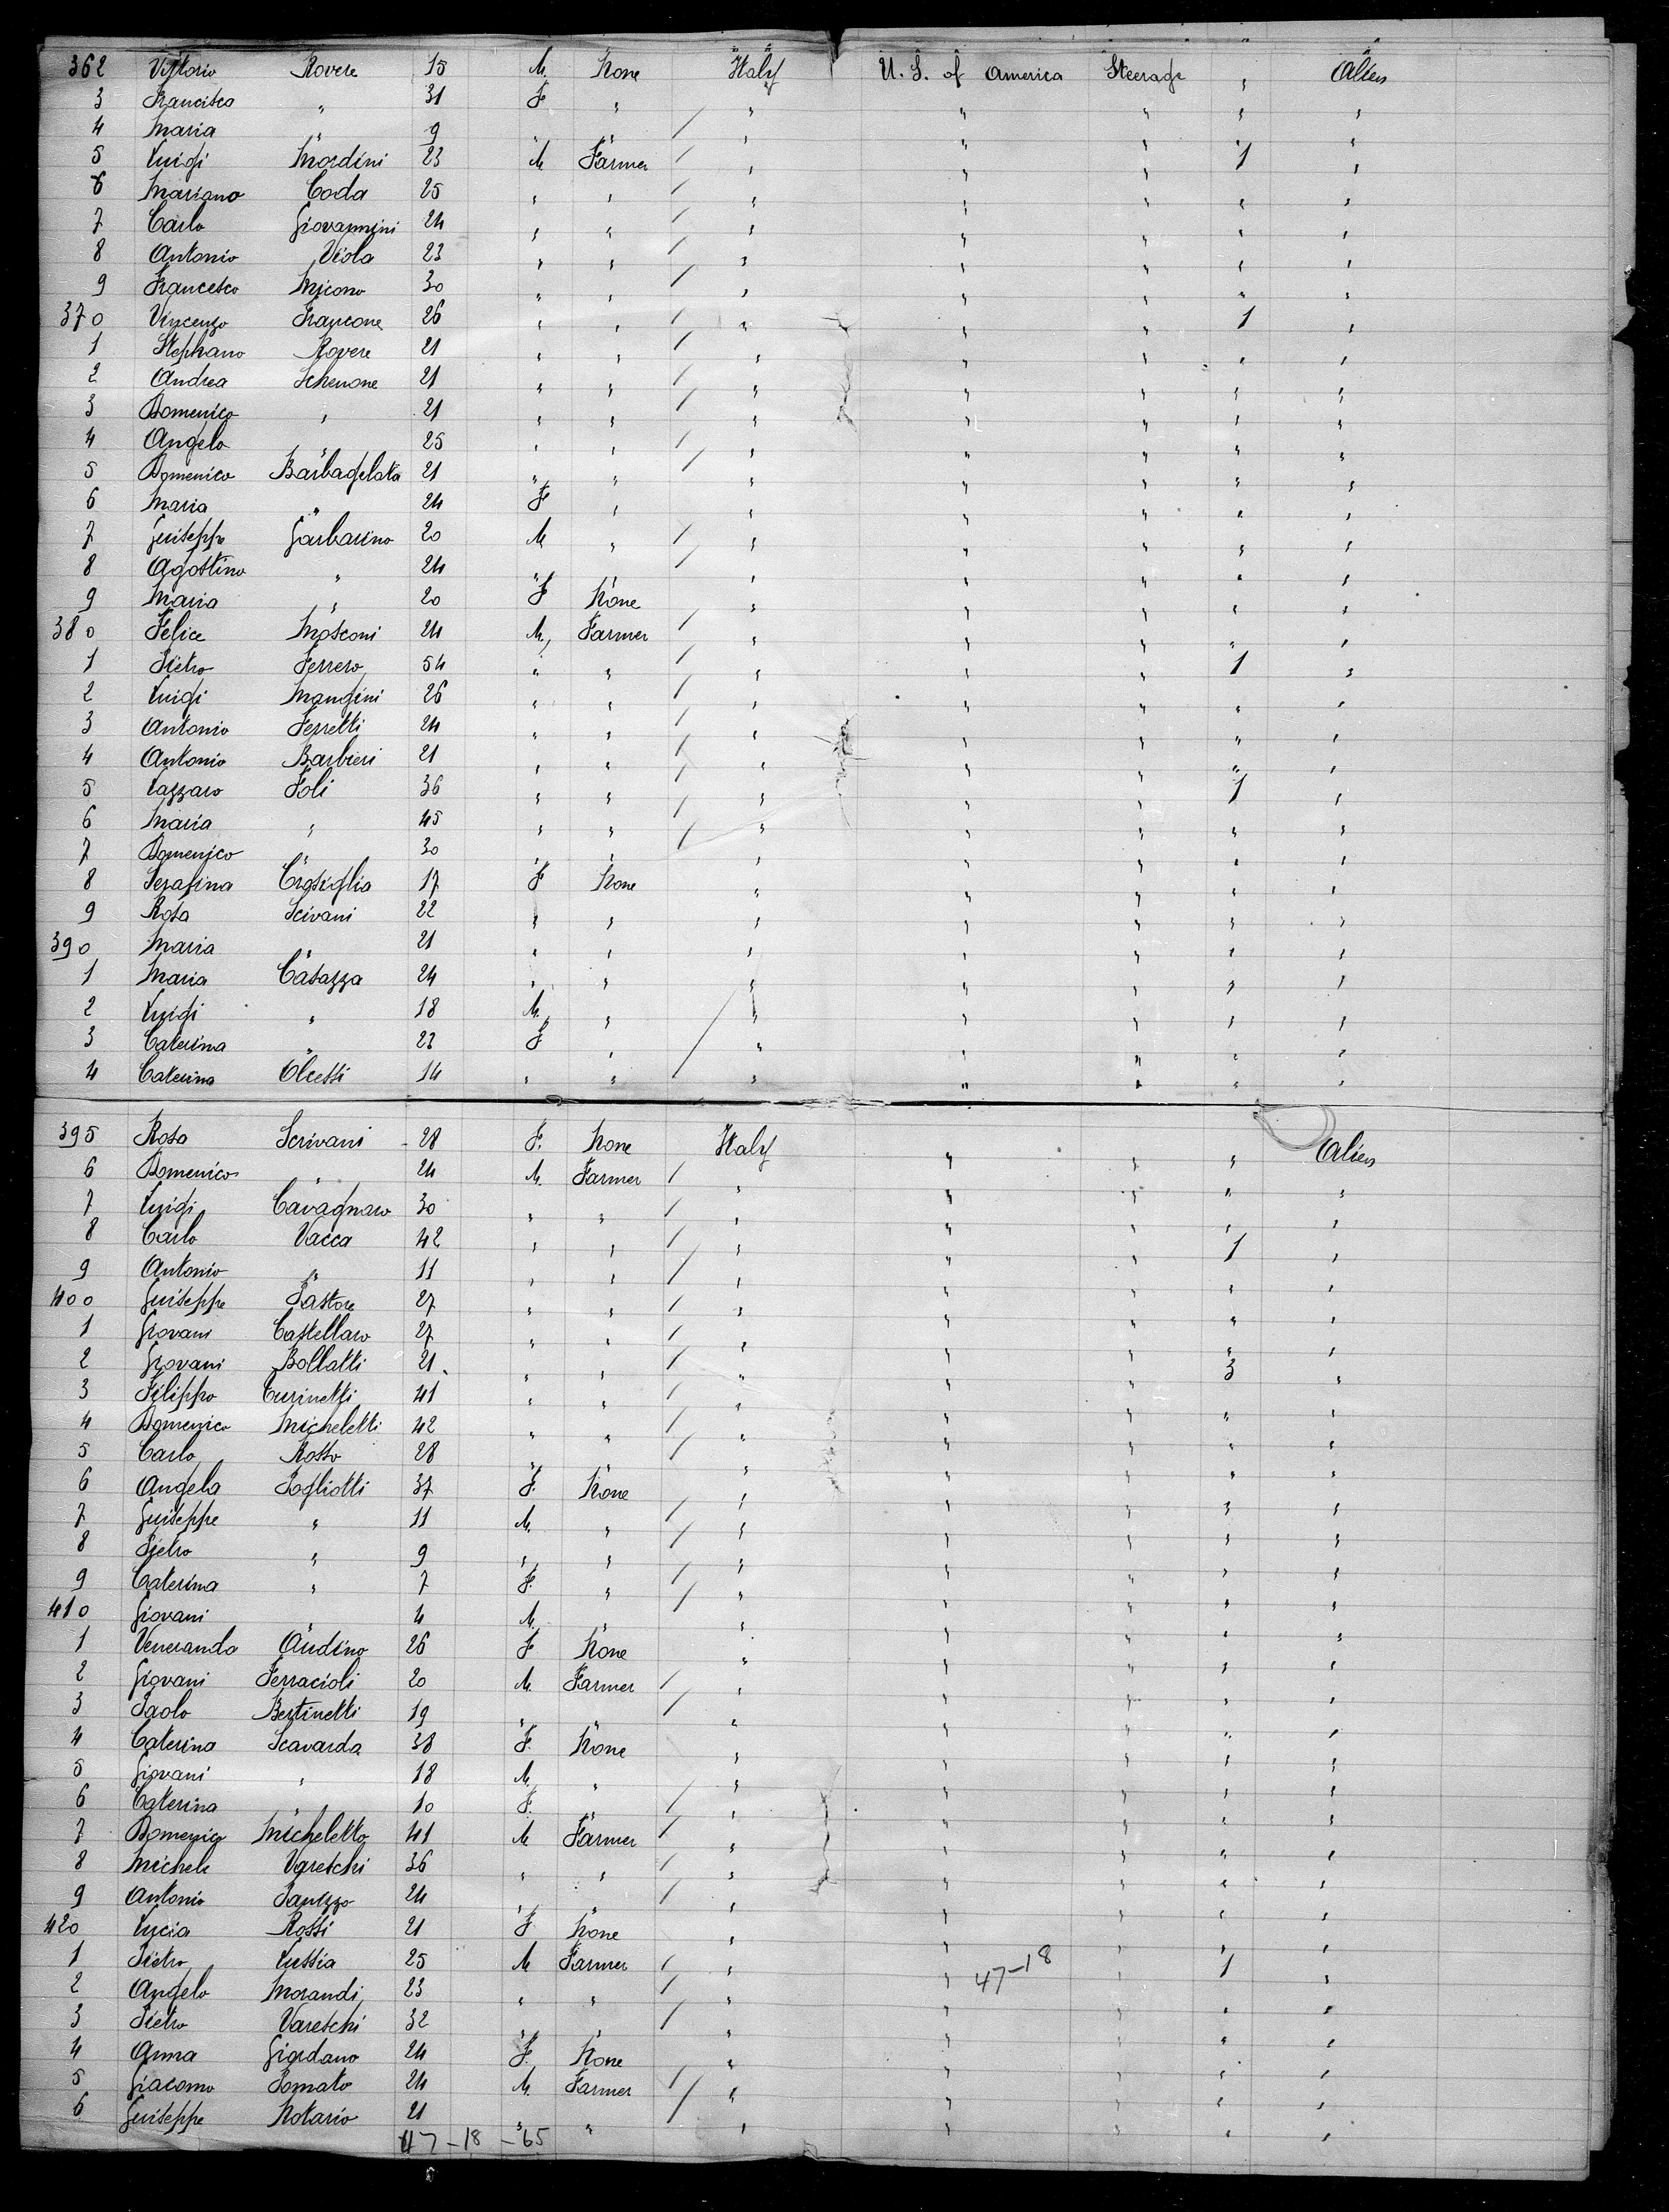 362 Vittorio Rovere 15 M. None Italy U. S. of America Steerage " Alien
3 Francisca " 31 F " / " " " " "
4 Maria " 9 " " " " " " "
5 Luigi Mordini 23 M Farmer / " " " 1 "
6 Mariano Coda 25 " " / " " " " "
7 Carlo Giovannini 24 " " / " " " " "
8 Antonio Viola 23 " " / " " " " "
9 Francesco Micono 30 " " / " " " " "
370 Vincenzo Francone 26 " " / " " " 1 "
1 Stephano Rovere 21 " " / " " " " "
2 Andrea Schenone 21 " " / " " " " "
3 Domenico " 21 " " / " " " " "
4 Angelo " 25 " " / " " " " "
5 Domenico Barbagelata 21 " " / " " " " "
6 Maria " 24 F " " " " " "
7 Guiseppe Garbarino 20 M " / " " " " "
8 Agostino " 24 " " / " " " " "
9 Maria " 20 F None " " " " "
380 Felice Mosconi 24 M, Farmer / " " " " "
1 Pietro Ferrero 54 " " / " " " 1 "
2 Luigi Mangini 26 " " / " " " " "
3 Antonio Ferretti 24 " " / " " " " "
4 Antonio Barbieri 21 " " / " " " " "
5 Lazzaro Foli 36 " " / " " " 1 "
6 Maria " 45 " " / " " " " "
7 Domenico " 30 " " / " " " " "
8 Serafina Crosiglia 17 F None " " " " "
9 Rosa Scivani 22 " " " " " " "
390 Maria " 21 " " " " " " "
1 Maria Casazza 24 " " " " " " "
2 Luigi " 18 M. " / " " " " "
3 Caterina " 23 F " / " " " " "
4 Caterina Olcessi 14 " " " " " " "
395 Rosa Scrivani 28 F. None Italy " " " Alien
6 Domenico " 24 M. Farmer / " " " " "
7 Luigi Cavagnaro 30 " " / " " " " "
8 Carlo Vacca 42 " " / " " " 1 "
9 Antonio " 11 " " / " " " " "
400 Guiseppe Pastore 27 " " / " " " " "
1 Giovani Castellaro 27 " " / " " " " "
2 Giovani Bollatti 21 " " / " " " 3 "
3 Filippo Turinetti 41 " " / " " " " "
4 Domenico Micheletti 42 " " / " " " " "
5 Carlo Rosso 28 " " / " " " " "
6 Angela Pogliotti 37 F. None " " " " "
7 Guiseppe " 11 M. " / " " " " "
8 Pietro " 9 " " / " " " " "
9 Caterina " 7 F. " / " " " " "
410 Giovani " 4 M. " / " " " " "
1 Veneranda Audino 26 F None " " " " "
2 Giovani Ferracioli 20 M. Farmer / " " " " "
3 Paolo Bertinetti 19 " " / " " " " "
4 Caterina Scavarda 38 F. None " " " " "
5 Giovani " 18 M, " / " " " " "
6 Caterina " 10 F. " / " " " " "
7 Domenico Micheletto 41 M Farmer / " " " " "
8 Michele Vareschi 36 " " / " " " " "
9 Antonio 24 " " / " " " " "
420 Lucia Rossi 21 F None " " " " "
1 Pietro Lussia 25 M Farmer / " " 47-18 " 1 "
2 Angelo Morandi 23 " " / " " " " "
3 Pietro Vareschi 32 " " / " " " " "
4 Anna Giordano 24 F. None " " " " "
5 Giacomo Pomato 24 M. Farmer / " " " " "
6 Guiseppe Notario 21 " " / " " " " "
47-18-65